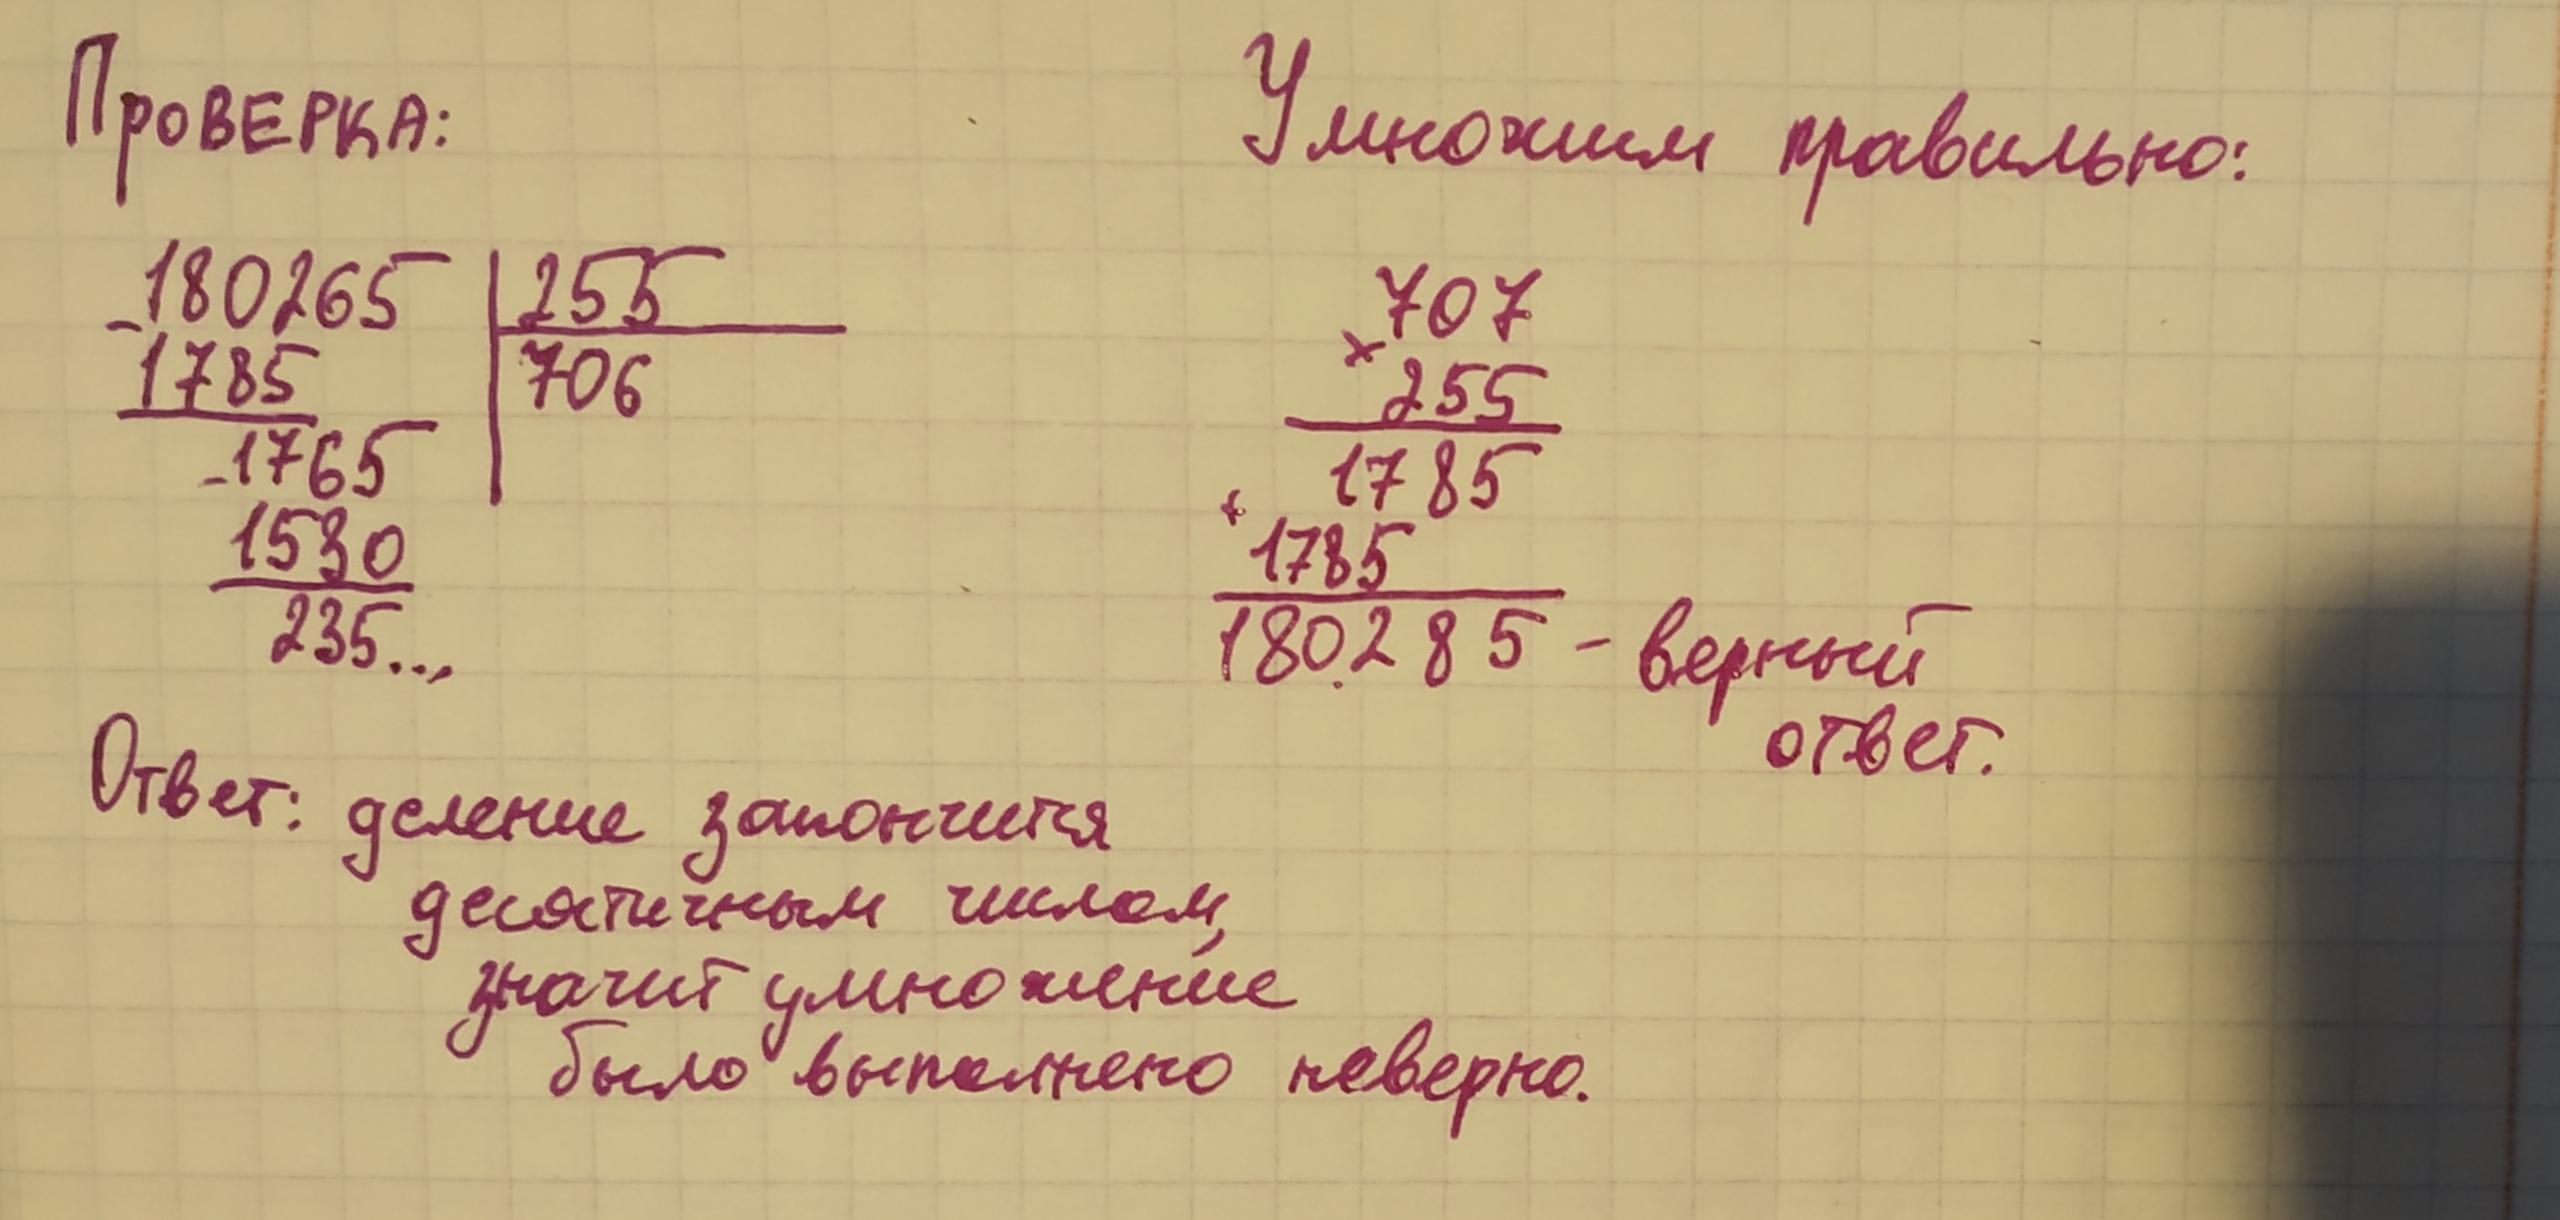 Проверка:
180265 | 255
- 1785 | 706
- 1765
1530
235...
Ответ: деление закончится
десятичным числом,
значит умножение
было выполнено неверно.
Умножим правильно:
707
× 255
1785
+ 1785
180285 - верный
ответ.